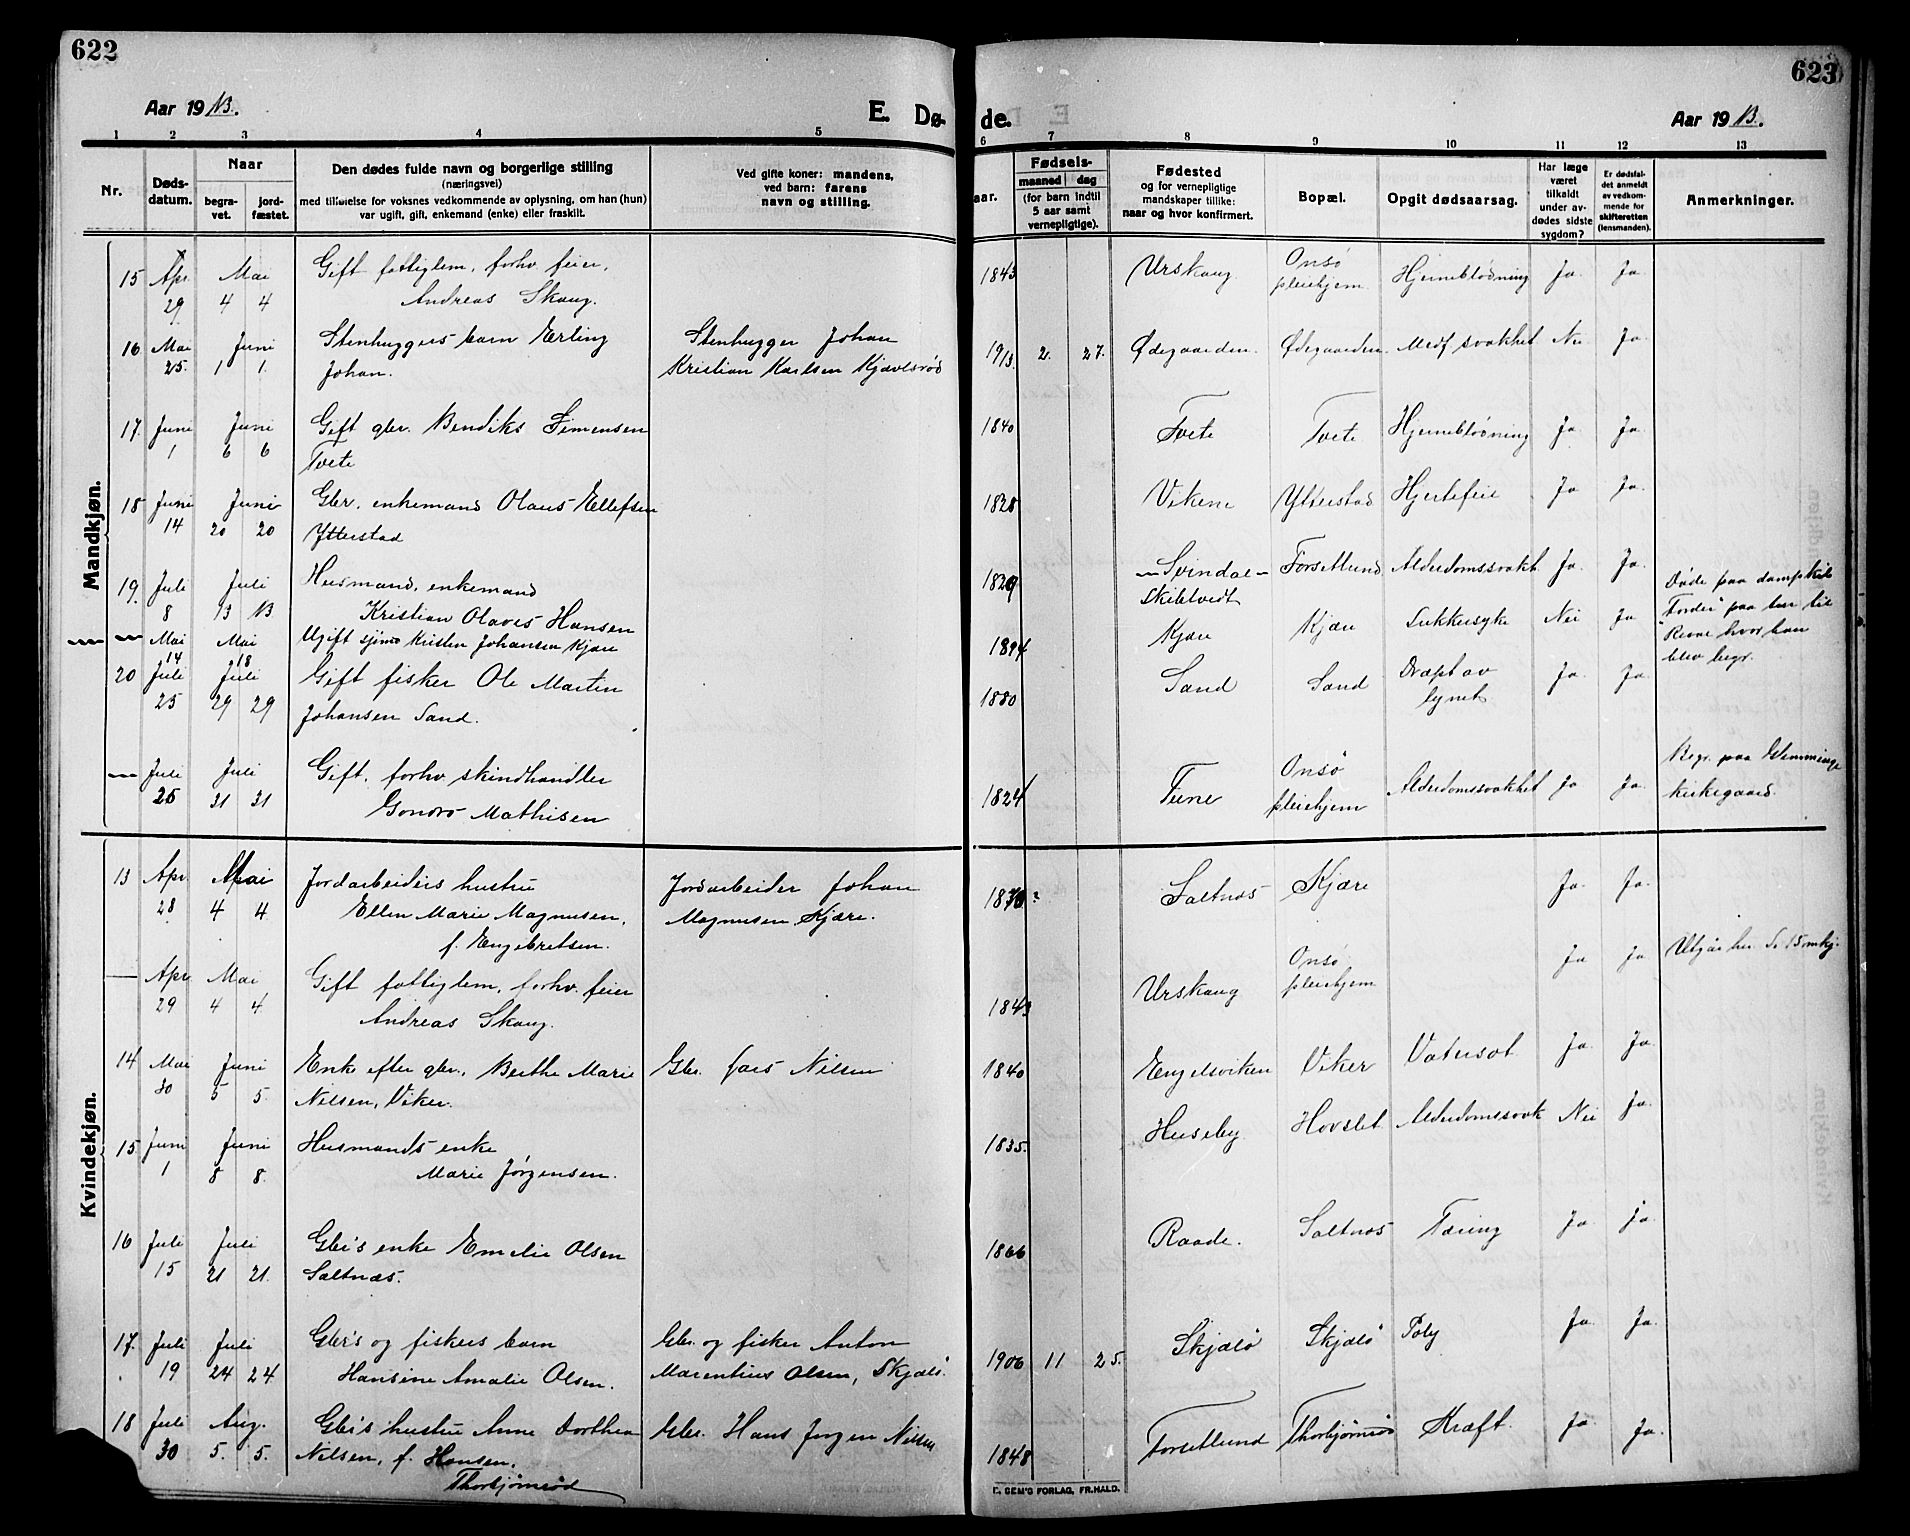 622
Aar 1913.
E. Dø-
1 2 3 4 5
Nr.
Døds-
datum.
Naar
begra-
vet.
jord-
fæstet.
Den dødes fulde navn og borgerlige stilling
(næringsvei)
med tilføielse for voksnes vedkommende av oplysning, om han (hun)
var ugift, gift, enkemand (enke) eller fraskilt.
Ved gifte koner: mandens,
ved barn: farens
navn og stilling.
Mandkjøn.
15 Apr. Mai Gift fattiglem, forhv. feier,
29 4 4 Andreas Skaug.
16 Mai Juni Stenhuggers barn Erling Stenhugger Johan
25. 1 1. Johan. Kristian Karlsen Kjævlesrød
17. Juni Juni Gift gbr. Bendiks Simensen
1 6 6 Tvete
18 Juni Juni Gbr. enkemand Olaus Ellefsen
14 20 20 Ytterstad
19. Juli Juli Husmand, enkemand
8 13 13 Kristian Olaves Hansen
— Mai Mai Ugift sjøm. Kristen Johansen Kjære
14 18
20 Juli Juli Gift fisker Ole Martin
25 29 29 Johansen Sand.
— Juli Juli Gift, forhv. skindhandler
26 31 31 Mathisen
Kvindekjøn.
13 Apr. Mai Jordarbeiders hustru Jordarbeider Johan
28 4 4. Ellen Marie Magnusen, Magnusen Kjære.
f. Engebretsen.
— Apr. Mai Gift fattiglem, forhv. feier
29 4 4. Andreas Skaug.
14 Mai Juni Enke efter gbr. Berthe Marie Gbr. Lars Nilsen
30 5 5. Nilsen, Viker.
15 Juni Juni Husmands enke
1 8 8. Marie Jørgensen.
16 Juli Juli Gbr's enke Emelie Olsen
15 21 21. Saltnæs.
17. Juli Juli Gbr's og fiskers barn Gbr. og fisker Anton
19 24 24 Hansine Amalie Olsen. Marentius Olsen, Skjælø.
18 Juli Aug. Gbr's hustru Anne Dorthea Gbr. Hans Jørgen Nilsen
30 5. 5. Nilsen, f. Hansen.
Thorbjørnrød
623
de.
Aar 1913.
6 7 8 9 10 11 12 13
aar.
Fødsels-
maaned dag
(for barn indtil
5 aar samt
vernepligtige).
Fødested
og for vernepligtige
mandskaper tillike:
naar og hvor konfirmert.
Bopæl.
Opgit dødsaarsag.
Har læge
været
tilkaldt
under av-
dødes sidste
sygdom?
Er dødsfal-
det anmeldt
av vedkom-
mende for
skifteretten
(lensmanden).
Anmerkninger.
1843 Urskaug Onsø pleiehjem Hjerneblødning Ja Ja
1913. 2. 27. Ødegaarden. Ødegaarden. Medf. svakhet Nei Ja.
1840 Tvete Tvete Hjerneblødning Ja Ja.
1828 Vikene Ytterstad Hjertefeil Ja Ja.
1829 Svindal Skibtvedt Forsetlund Alderdomssvakh. Ja. Ja.
1894 Kjære Kjære Sukkersyke Nei Ja Døde paa dampskib
"Fordei" paa tur til
Revae hvor han
blev begr.
1880 Sand Sand Dræpt av lynet Ja. Ja.
1824 Tune Onsø pleiehjem Alderdomssvakhet Ja Ja. Begr. paa Glemminge
kirkegaard.
1870? Saltnæs Kjære Ja. Ja.
1843 Urskaug Onsø pleiehjem Ja Ja. Utgår her. Se 15 mkj.
1840 Engelsviken Viker Vatersot Ja. Ja.
1835. Huseby Hovslet Alderdomssvak Nei Ja.
1866 Raade. Saltnæs Tæring Ja. Ja.
1906 11 25. Skjælø Skjælø Poly Ja. Ja.
1848 Forsetlund Thorbjørnrød Kræft. Ja. Ja.
SEM'S FORLAG, FR.HALD.